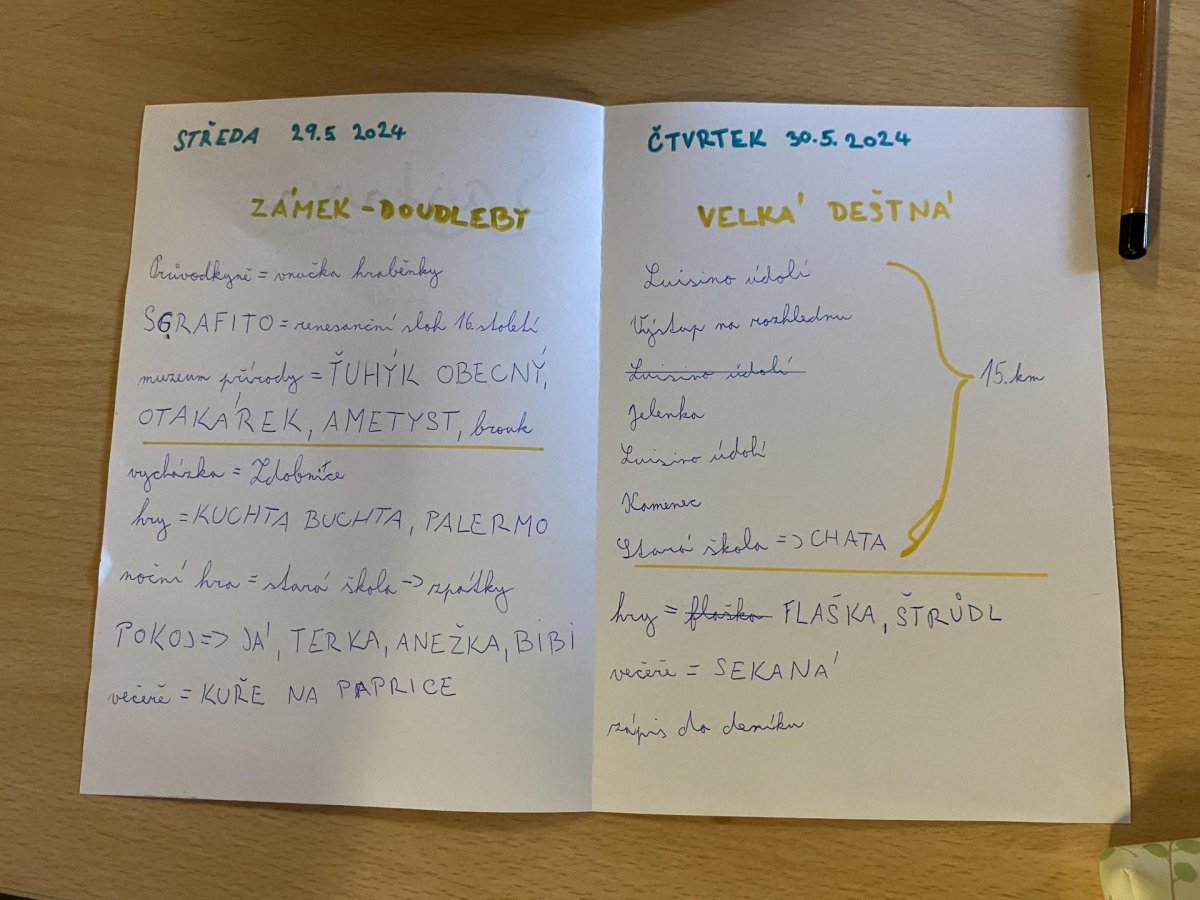 STŘEDA 29.5 2024
ZÁMEK - DOUDLEBY
Průvodkyně = vnučka hraběnky
SGRAFITO = renesanční sloh 16. století
muzeum přírody = ŤUHÝK OBECNÝ,
OTAKÁREK, AMETYST, brouk
vycházka = Zdobnice
hry = KUCHTA BUCHTA, PALERMO
noční hra = stará škola -> zpátky
POKOJ => JÁ, TERKA, ANEŽKA, BIBI
večeře = KUŘE NA PAPRICE
ČTVRTEK 30.5. 2024
VELKÁ DEŠTNÁ
Luisino údolí
Výstup na rozhlednu
Luisino údolí
Jelenka
15. km
Luisino údolí
Kamenec
Stará škola => CHATA
hry = flaška FLAŠKA, ŠTRŮDL
večeře = SEKANÁ
zápis do deníku